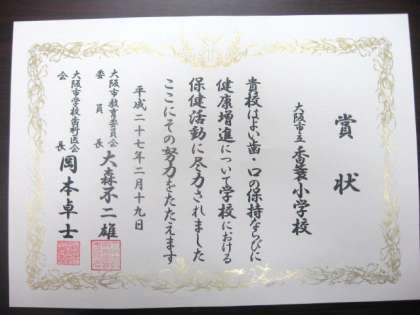 賞状
大阪市立香簑小学校
貴校はよい歯・口の保持ならびに
健康増進について学校における
保健活動に尽力されました
ここにその努力をたたえます
平成二十七年二月十九日
大阪市教育委員会
委員長 大森不二雄
大阪市学校歯科医会
会長 岡本卓士